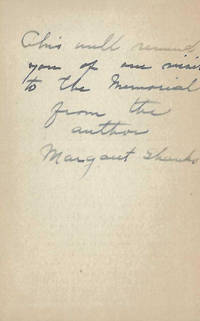 This will remind
you of our visit
to the Memorial
from the
author
Margaret Shanks